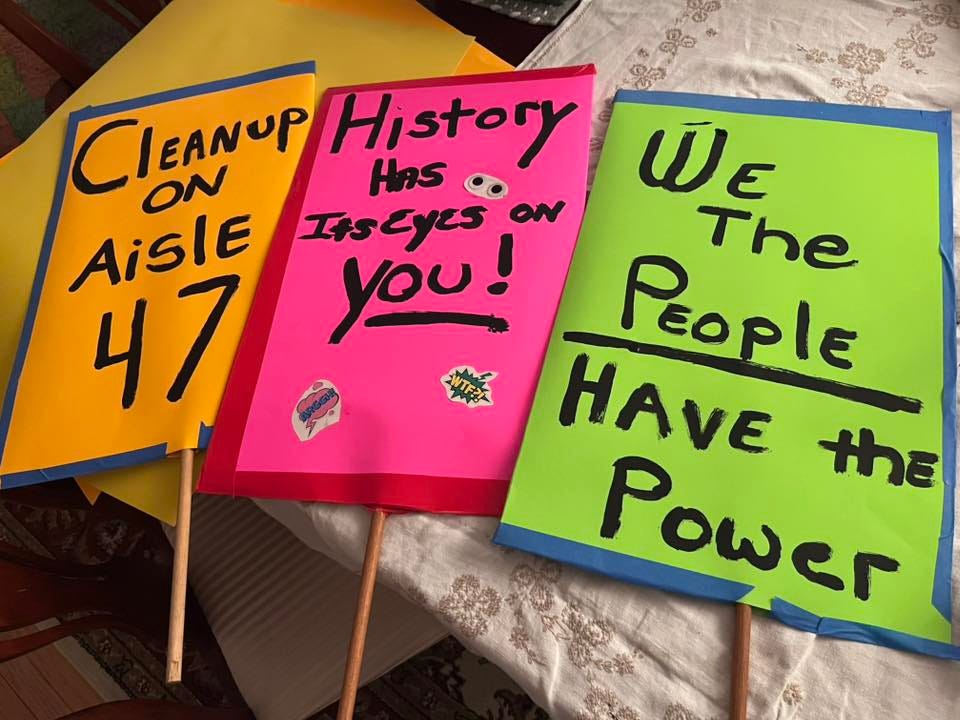 CLEANUP
ON
AISLE
47
History
HAS
ITS EYES ON
YOU!
ARGGH!
WTF?!
WE
The
PEOPLE
HAVE the
POWer